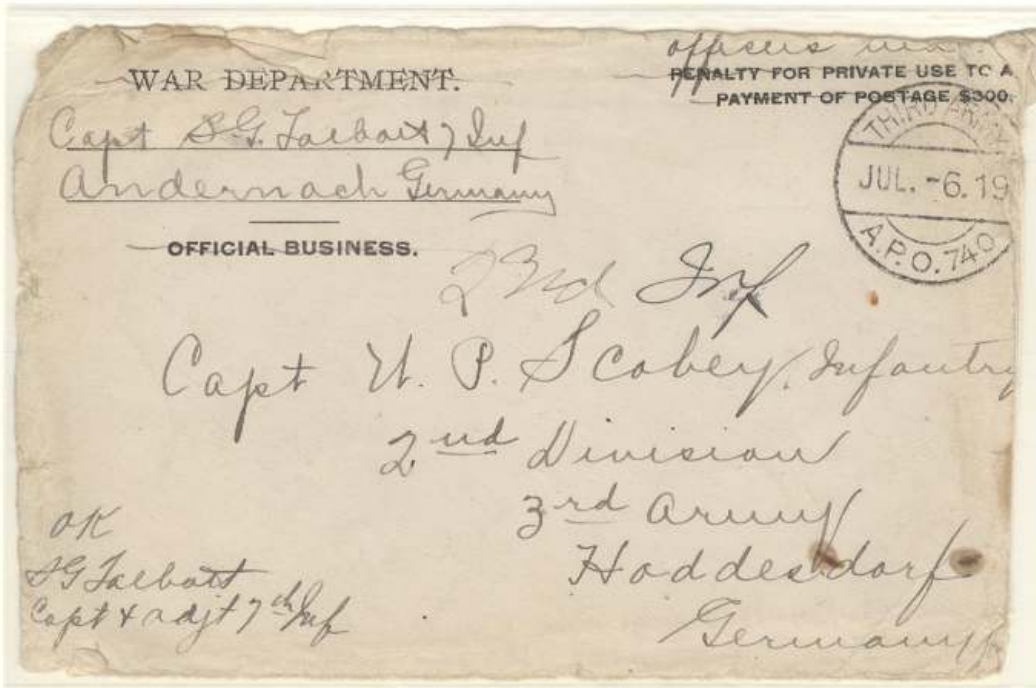 officers
WAR DEPARTMENT.
PENALTY FOR PRIVATE USE TO A
PAYMENT OF POSTAGE $300.
Capt S.G. Talbott 7 Inf
Andernach Germany
OFFICIAL BUSINESS.
THIRD ARMY
JUL. -6. 19
A.P.O. 740
23rd Inf
Capt W. P. Scobey, Infantry
2nd Division
3rd Army
Hoddesdorf
Germany
OK
SG Talbott
Capt & adjt 7th Inf